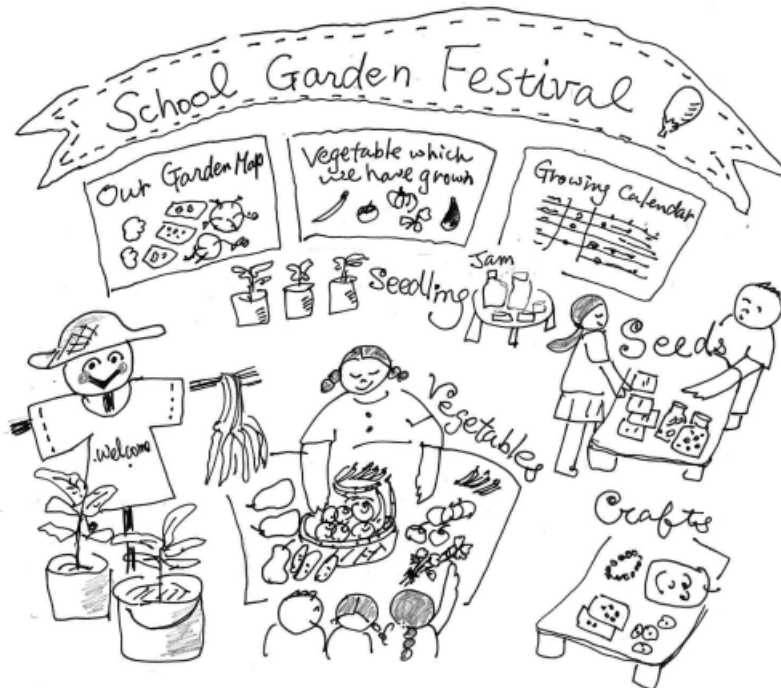 School Garden Festival
Our Garden Map
Vegetable which
we have grown
Growing Calendar
Jam
Seedling
Seeds
Vegetables
Welcome
Crafts